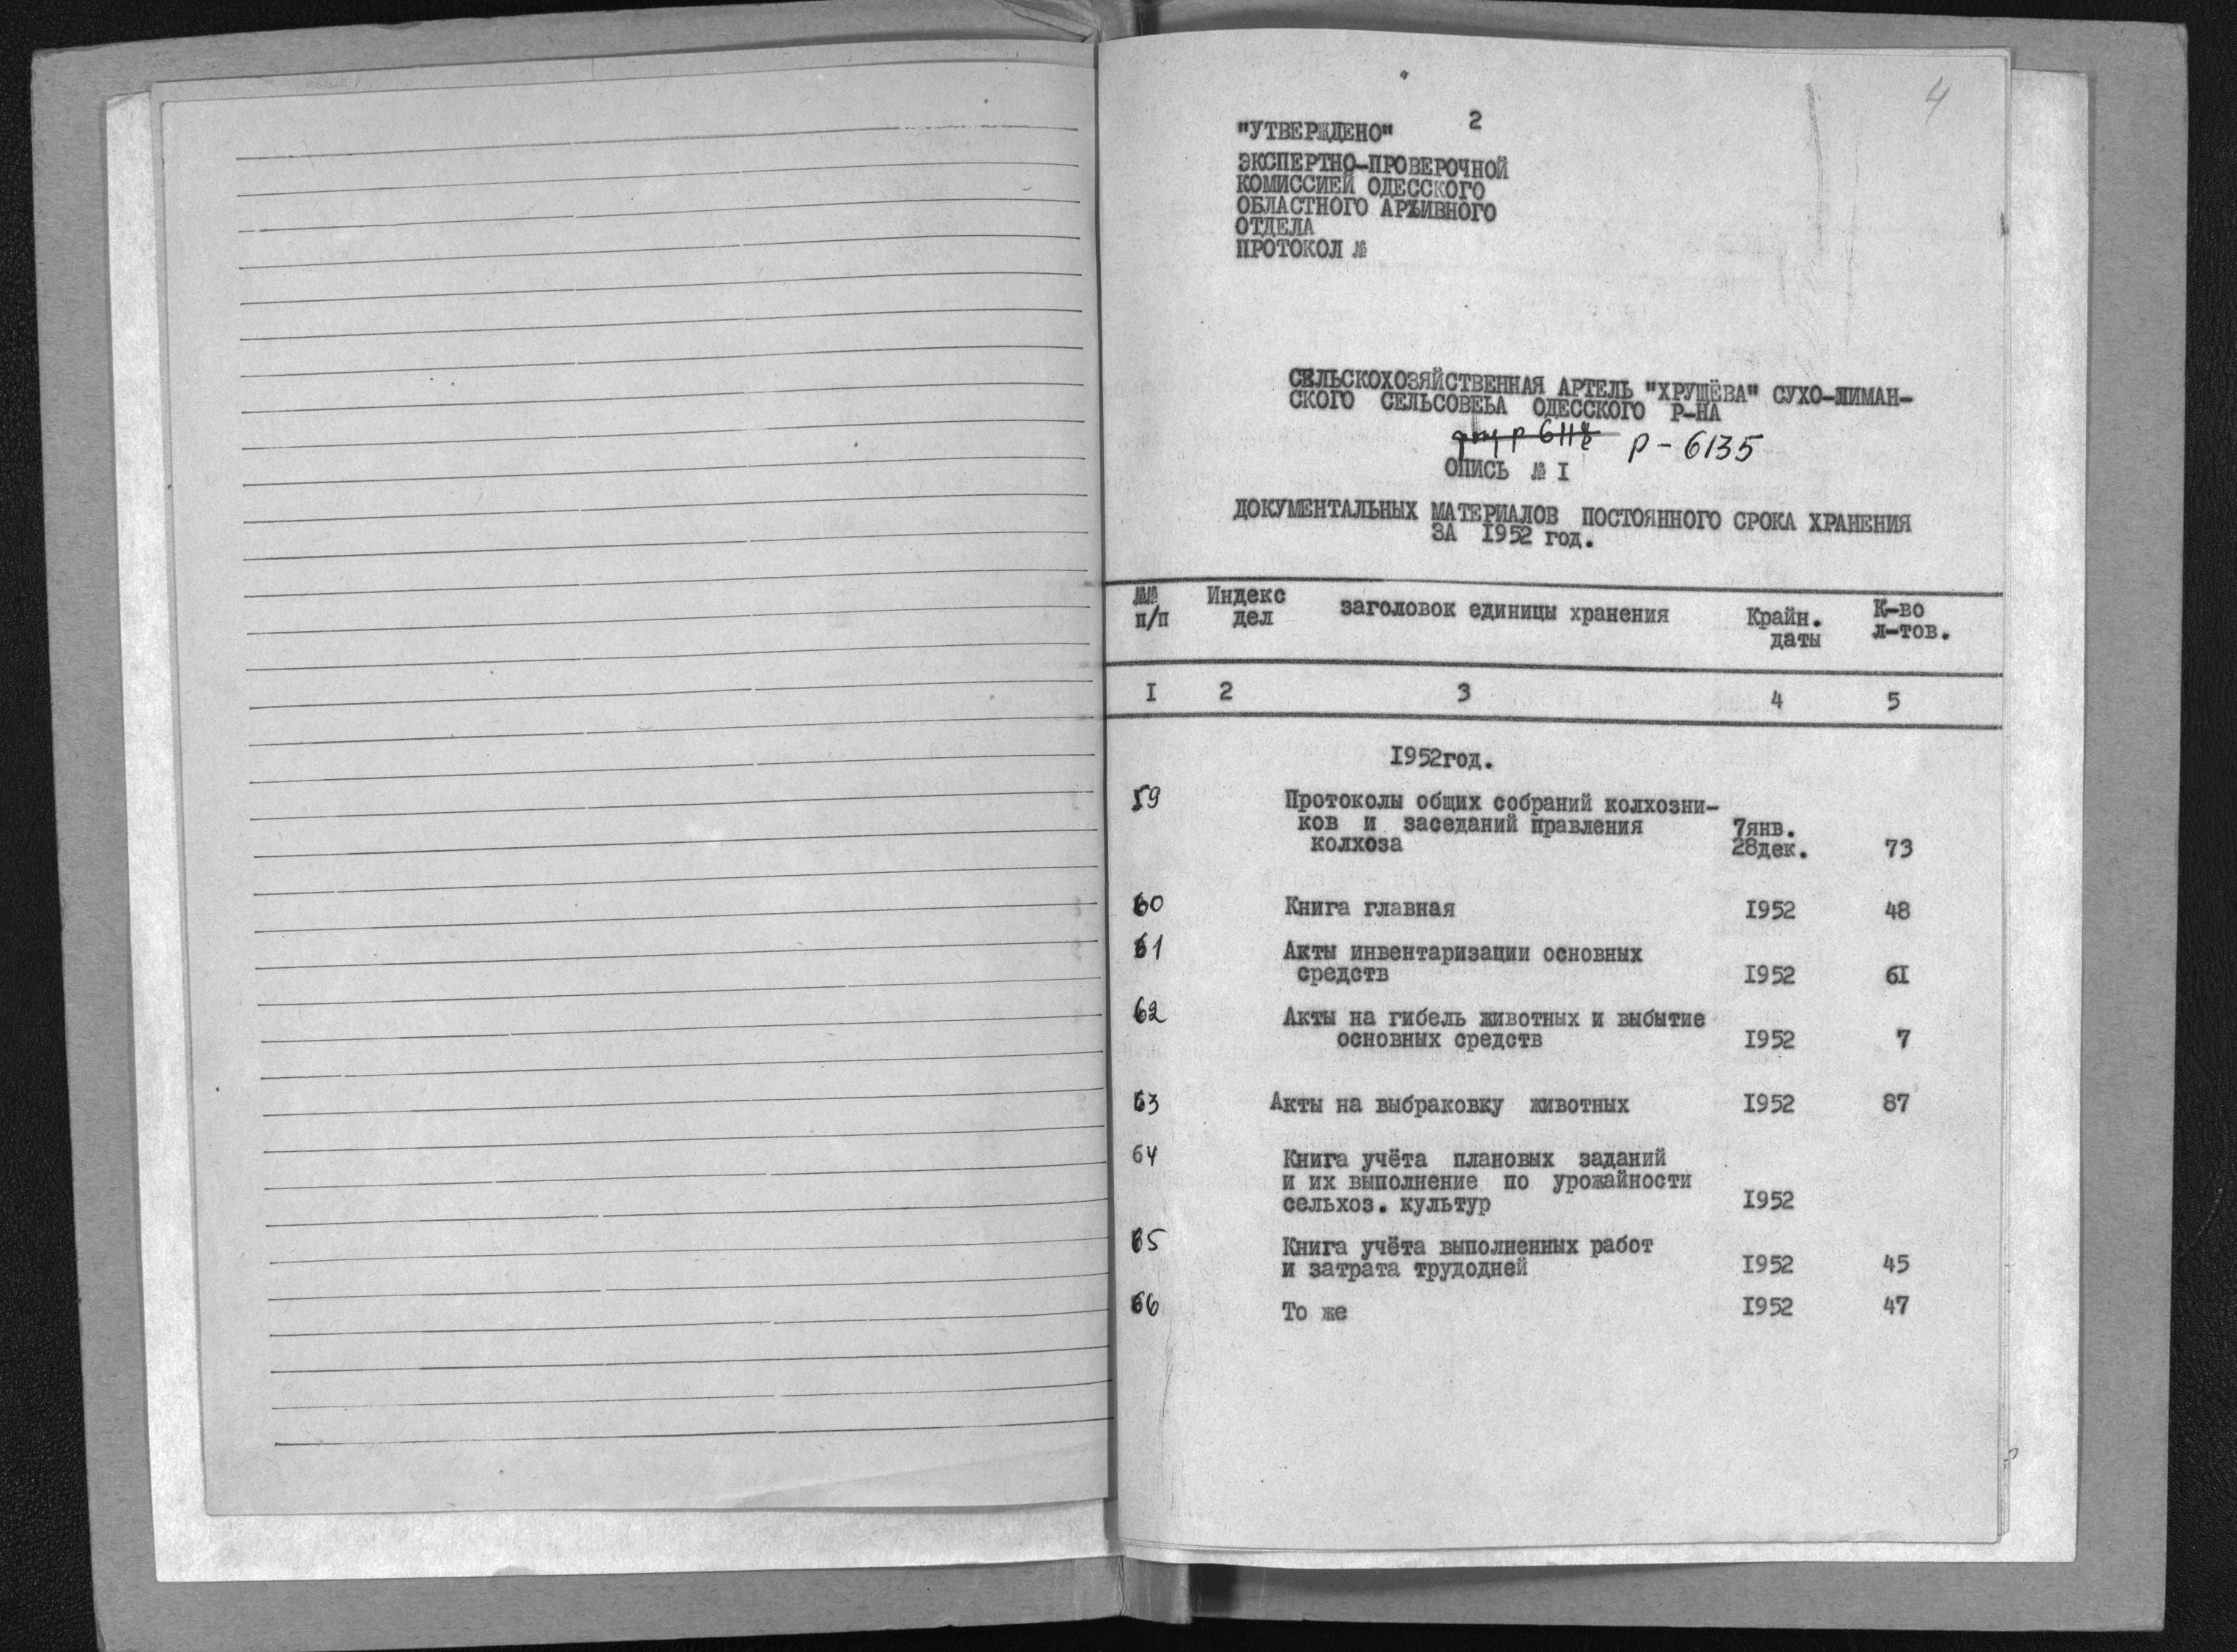 4
2
"УТВЕРЖДЕНО"
ЭКСПЕРТНО-ПРОВЕРОЧНОЙ
КОМИССИЕЙ ОДЕССКОГО
ОБЛАСТНОГО АРХИВНОГО
ОТДЕЛА
ПРОТОКОЛ №
СЕЛЬСКОХОЗЯЙСТВЕННАЯ АРТЕЛЬ "ХРУЩЁВА" СУХО-ЛИМАН-
СКОГО СЕЛЬСОВЕЬА ОДЕССКОГО Р-НА
р - 6135
ОПИСЬ № I
ДОКУМЕНТАЛЬНЫХ МАТЕРИАЛОВ ПОСТОЯННОГО СРОКА ХРАНЕНИЯ
ЗА I952 год.
№№ п/п Индекс дел заголовок единицы хранения Крайн. даты К-во л-тов.
I 2 3 4 5
I952год.
59 Протоколы общих собраний колхозни-
ков и заседаний правления 7янв.
колхоза 28дек. 73
60 Книга главная I952 48
61 Акты инвентаризации основных
средств I952 6I
62 Акты на гибель животных и выбытие
основных средств I952 7
63 Акты на выбраковку животных I952 87
64 Книга учёта плановых заданий
и их выполнение по урожайности
сельхоз. культур I952
65 Книга учёта выполненных работ
и затрата трудодней I952 45
66 То же I952 47